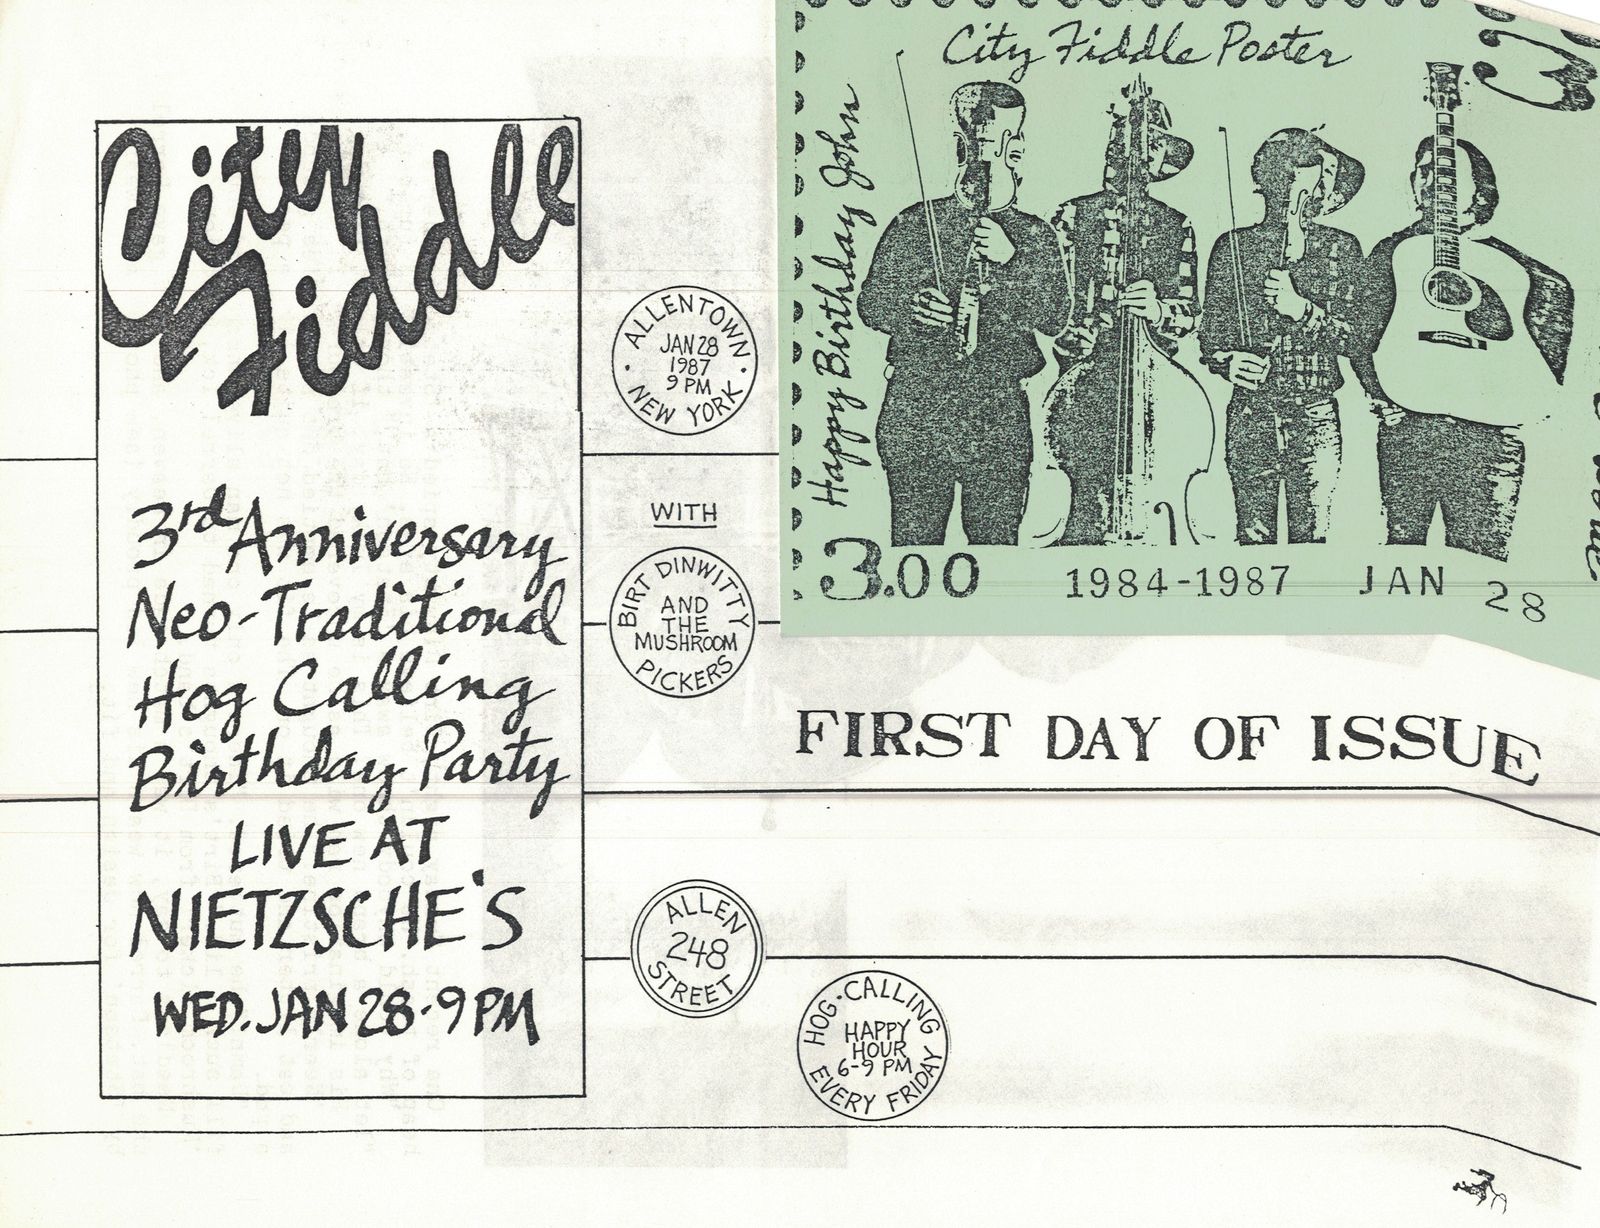 City
Fiddle
3rd Anniversary
Neo-Traditional
Hog Calling
Birthday Party
LIVE AT
NIETZSCHE'S
WED. JAN 28 · 9 PM
ALLENTOWN
JAN 28
1987
9 PM
· NEW YORK ·
WITH
BIRT DINWITTY
AND
THE
MUSHROOM
PICKERS
ALLEN
248
STREET
HOG · CALLING
HAPPY
HOUR
6-9 PM
EVERY FRIDAY
City Fiddle Poster
Happy Birthday John
3.00 1984-1987 JAN 28
FIRST DAY OF ISSUE